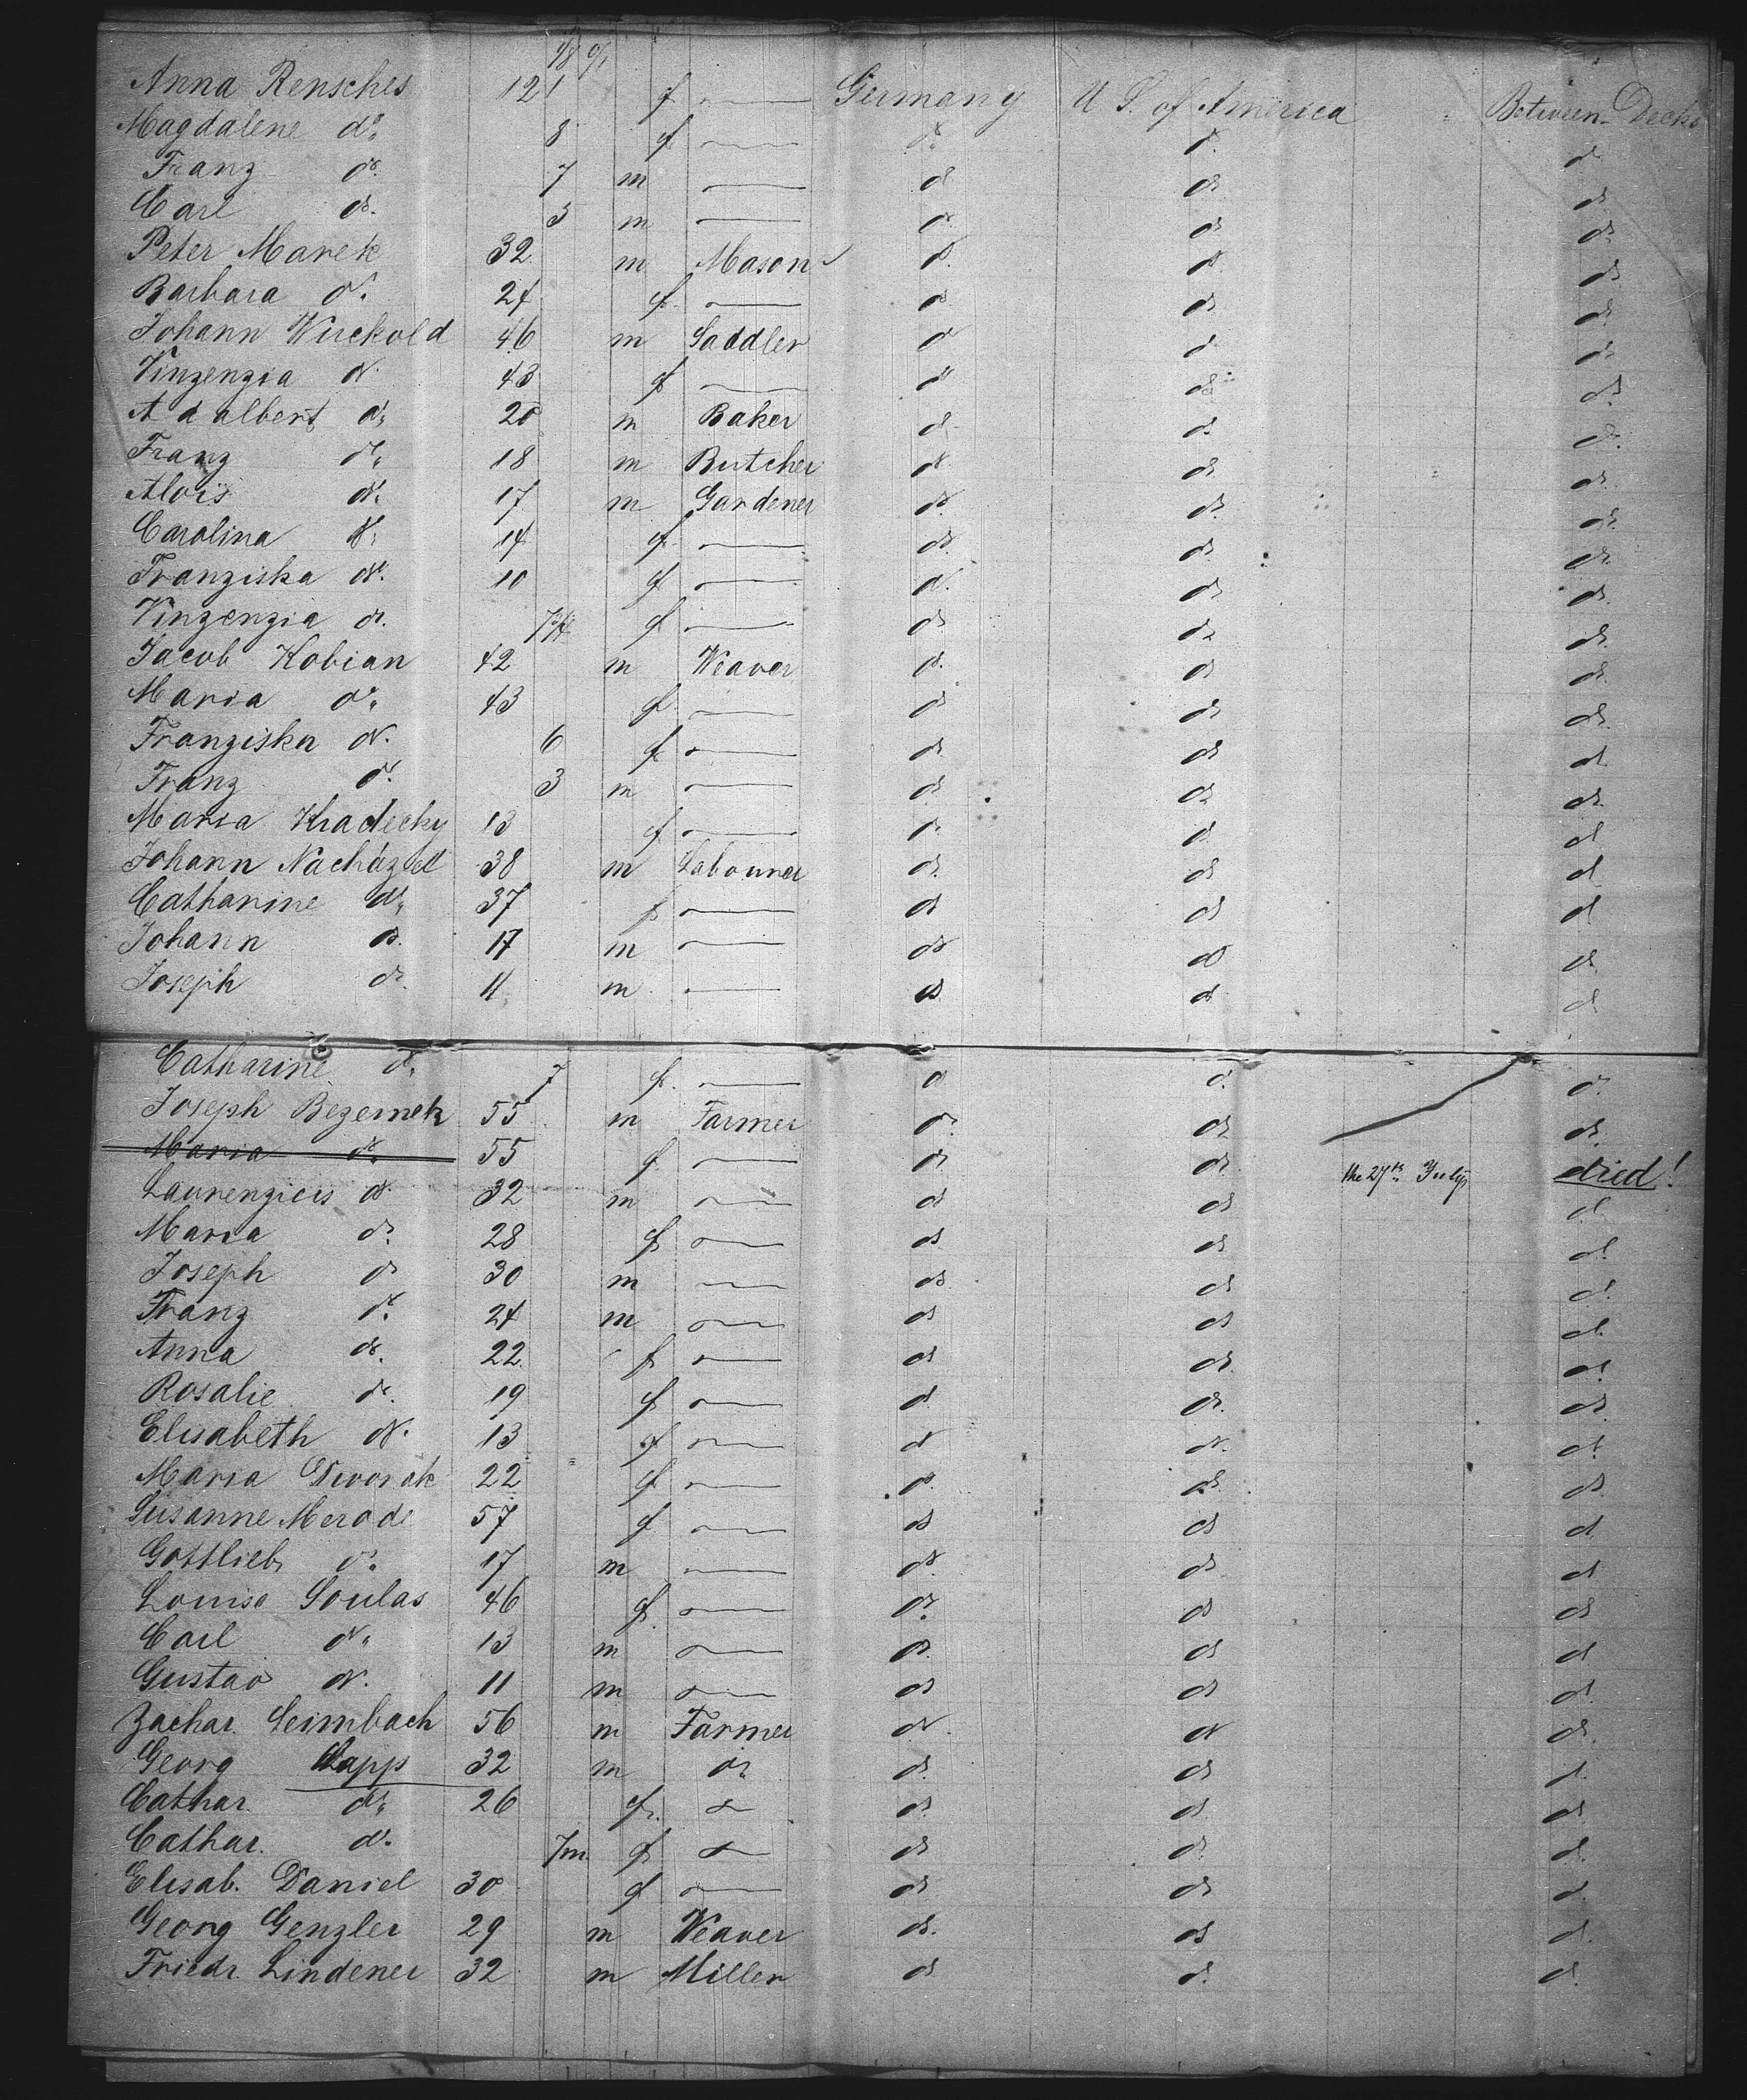 Anna Rensches 12 f — Germany U S. of America Between Decks
Magdalene do 8 f — do do do
Franz do 7 m — do do do
Carl do 3 m — do do do
Peter Marek 32 m Mason do do do
Barbara do 24 f — do do do
Johann Wuckold 46 m Saddler do do do
Vinzenzia do 43 f — do do do
Adalbert do 20 m Baker do do do
Franz do 18 m Butcher do do do
Alois do 17 m Gardener do do do
Carolina do 14 f — do do do
Franziska do 10 f — do do do
Vinzenzia do f — do do do
Jacob Kobian 42 m Weaver do do do
Maria do 43 f — do do do
Franziska do 6 f — do do do
Franz do 3 m — do do do
Maria Hradecky 13 f — do do do
Johann Nacházell 38 m Labourer do do do
Catharine do 37 f — do do do
Johann do 17 m — do do do
Joseph do 11 m — do do do
Catharine do 7 f — do do do
Joseph Bezemek 55 m Farmer do do do
Maria do 55 f — do do the 27th July died!
Laurenzius do 32 m — do do do
Maria do 28 f — do do do
Joseph do 30 m — do do do
Franz do 24 m — do do do
Anna do 22 f — do do do
Rosalie do 19 f — do do do
Elisabeth do 13 f — do do do
Maria Dworak 22 f — do do do
Susanne Merode 57 f — do do do
Gottlieb do 17 m — do do do
Louise Soulas 46 f — do do do
Carl do 13 m — do do do
Gustav do 11 m — do do do
Zachar. Leimbach 56 m Farmer do do do
Georg Lapp 32 m do do do do
Cathar. do 26 f — do do do
Cathar. do 7m f — do do do
Elisab. Daniel 30 f — do do do
Georg Genzler 29 m Weaver do do do
Friedr. Lindener 32 m Miller do do do